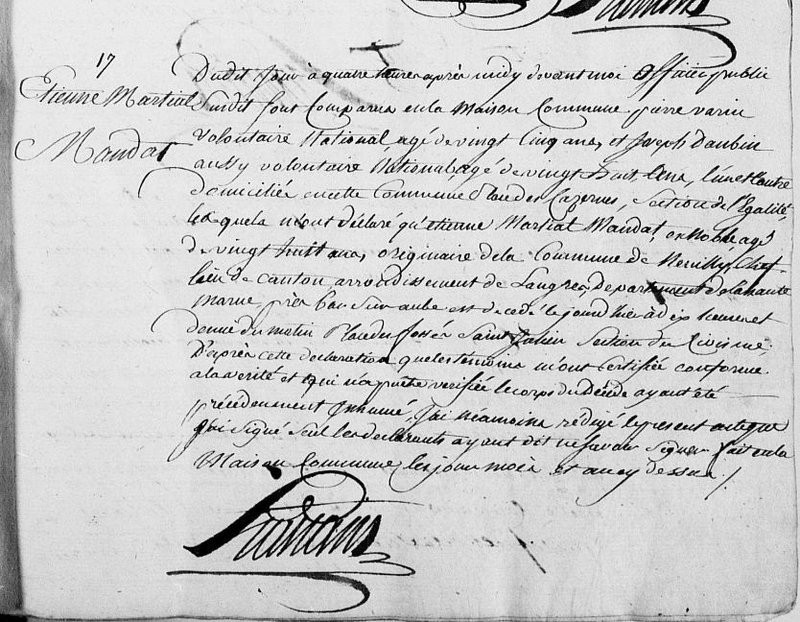 17
Etienne Martial
Mandat
Dudit jour à quatre heures après midy devant moi officier public
Susdit sont Comparus en la Maison Commune pierre varin
Volontaire National, agé de vingt Cinq ans, et Joseph Daubin
aussy volontaire National agé de vingt huit ans, l'un et l'autre
domiciliés en cette Commune Place des Cazernes, Section de l'Egalité,
Lesquels m'ont déclaré qu'etienne Martial Mandat, ex Noble agé
de vingt huit ans, originaire de la Commune de Neuilly Chef
lieu de Canton arrondissement de Langres, Departement de la haute
Marne, près bar sur aube est decedé le jour d'hier à dix heures et
demie du matin Place des fossés Saint Julien Section du Civisme,
D'après cette declaration que les temoins m'ont Certifiée conforme
a la verité et qui n'a pu être verifiée le corps du Décédé ayant été
précédemment Inhumé, J'ai néamoins redigé le present acte que
j'ai signé seul les declarants ayant dit ne savoir signer fait en la
Maison Commune, les jour mois et an cy dessus /